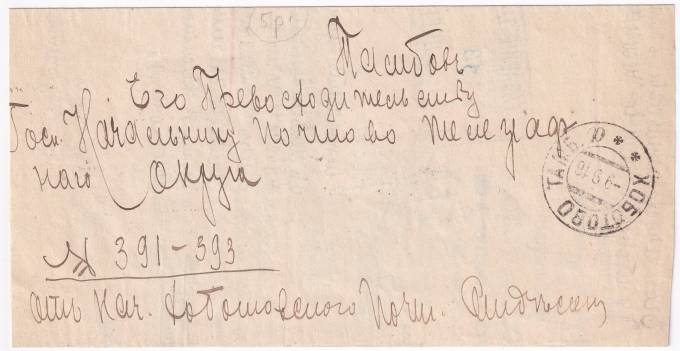 5рг
Тамбовъ
Его Превосходительству
Госп. Начальнику Почтово Телеграф
наго Округа
№ 391-393
отъ Нач. Хоботовскаго Почт.
ХОБОТОВО ТАМБ. Р * *
-9 9 16